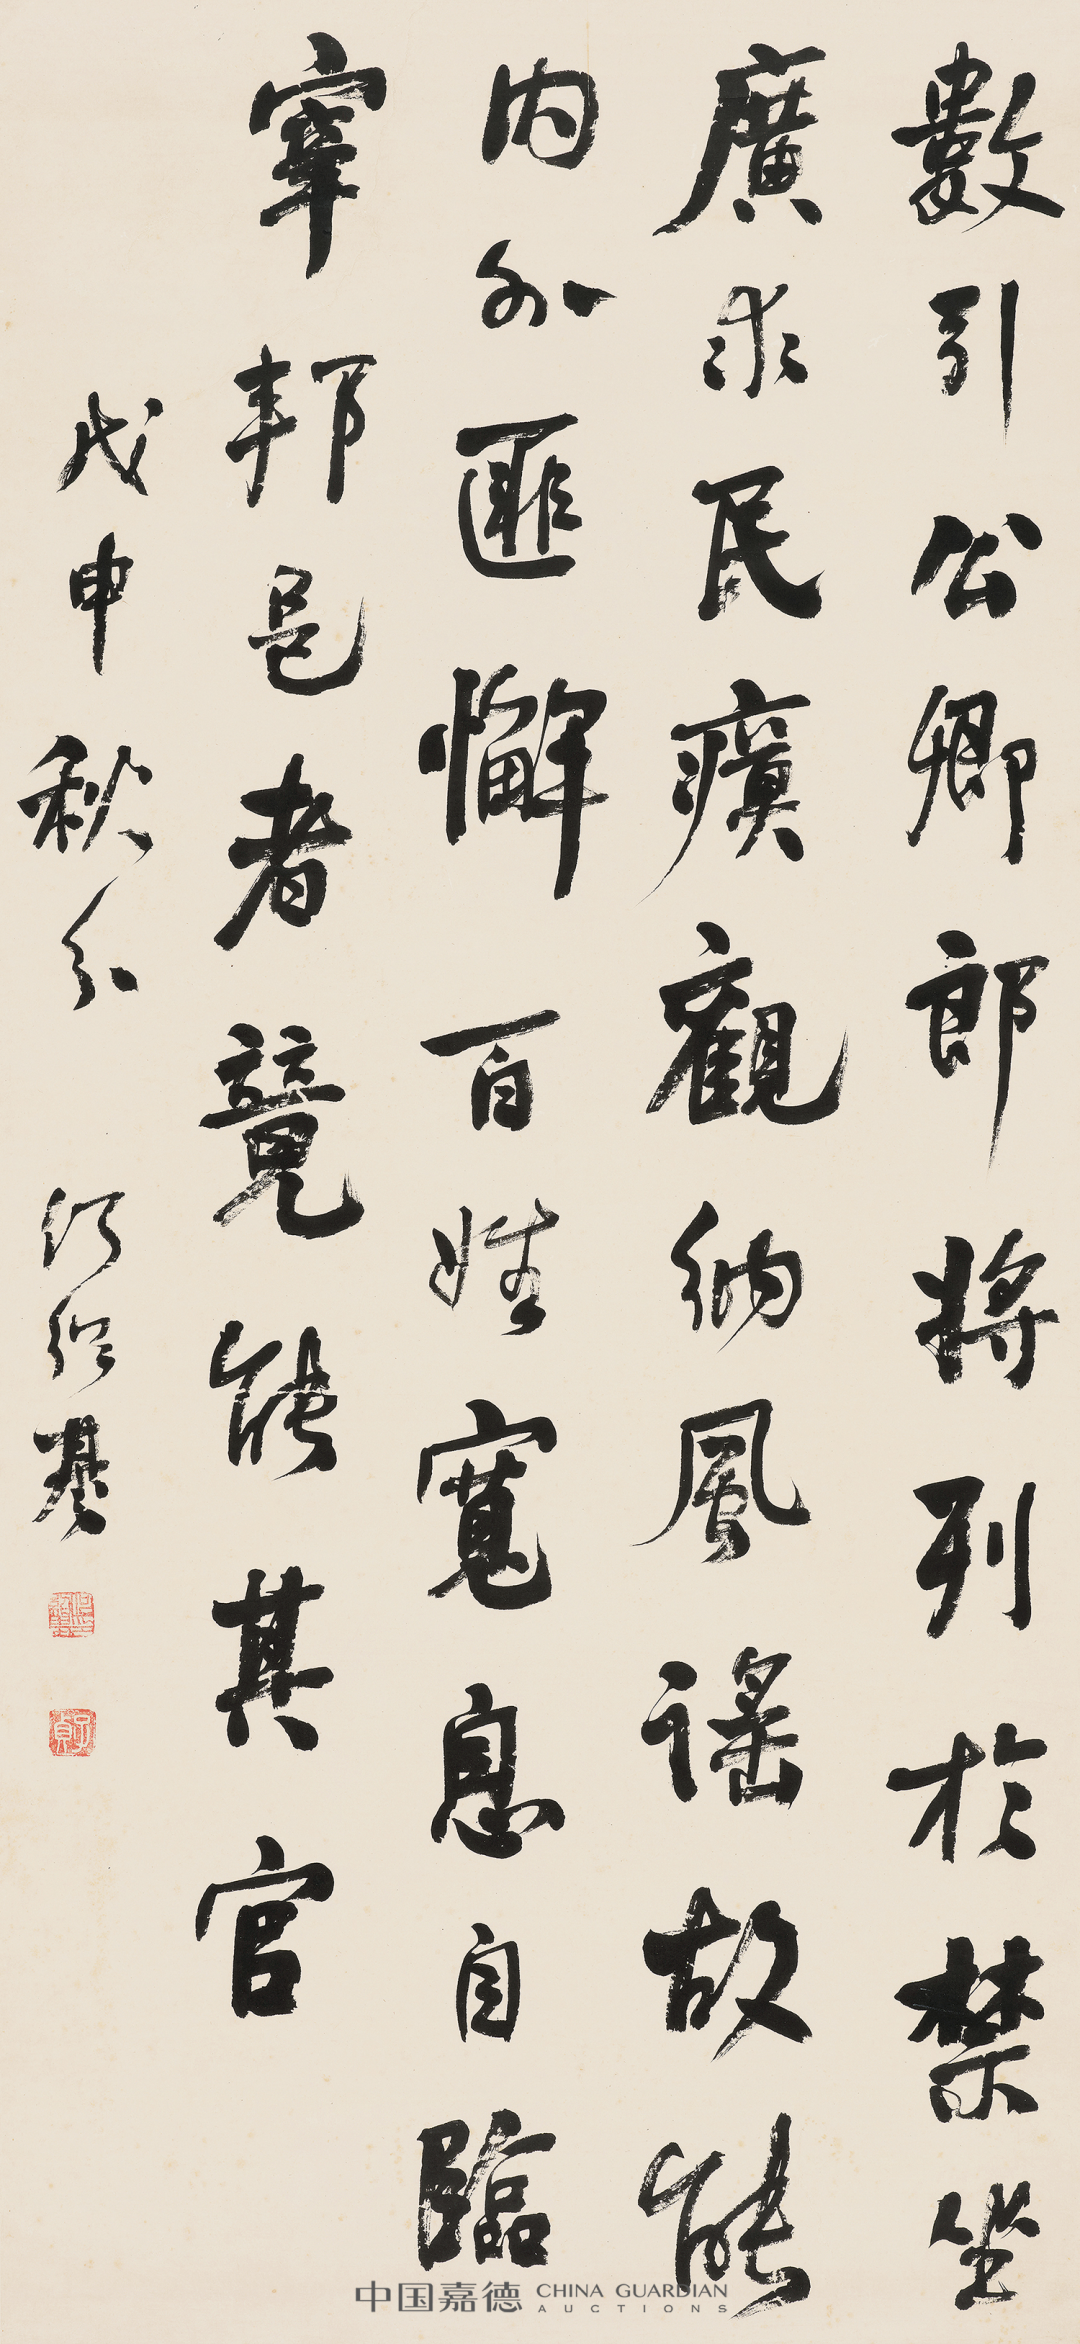 數引公卿郎將列於禁坐
廣求民瘼觀納風謠故能
內外匪懈百姓寬息自臨
宰邦邑者競能其官
戊申秋分
何紹基
子貞
中国嘉德 CHINA GUARDIAN AUCTIONS